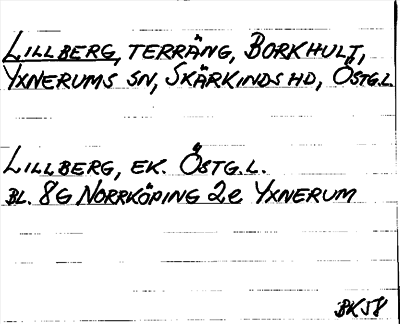 LILLBERG, TERRÄNG, BORKHULT,
YXNERUMS SN, SKÄRKINDS HD, ÖSTG.L.
LILLBERG, EK. ÖSTG.L.
BL. 8G NORRKÖPING 2e YXNERUM
BK58